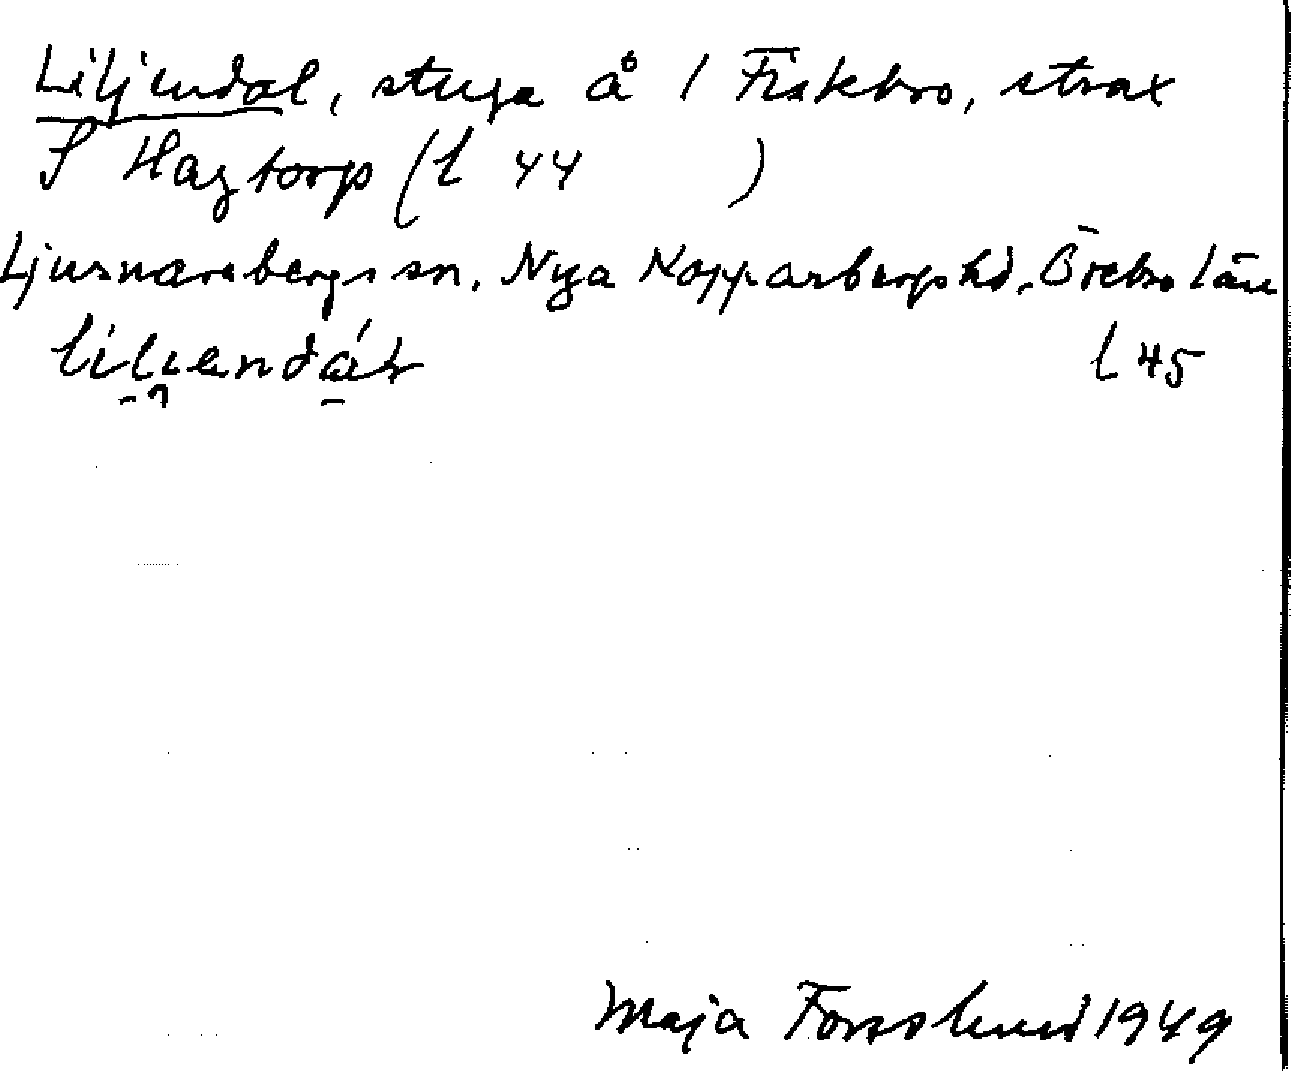 Liljendal, stuga å 1 Fiskebro, strax
S Hagtorp (l 44 )
Ljusnarsbergs sn, Nya Kopparbergs hd, Örebro län
l 45
Maja Forsslund 1949